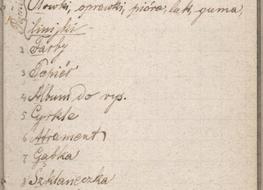 Ołówki, oprawki, pióra, lak, guma,
linijki
2 Farby
3 Papier
4 Album do rys.
5 Cyrkle
6 Atrament
7 Gąbka
8 Szklaneczka